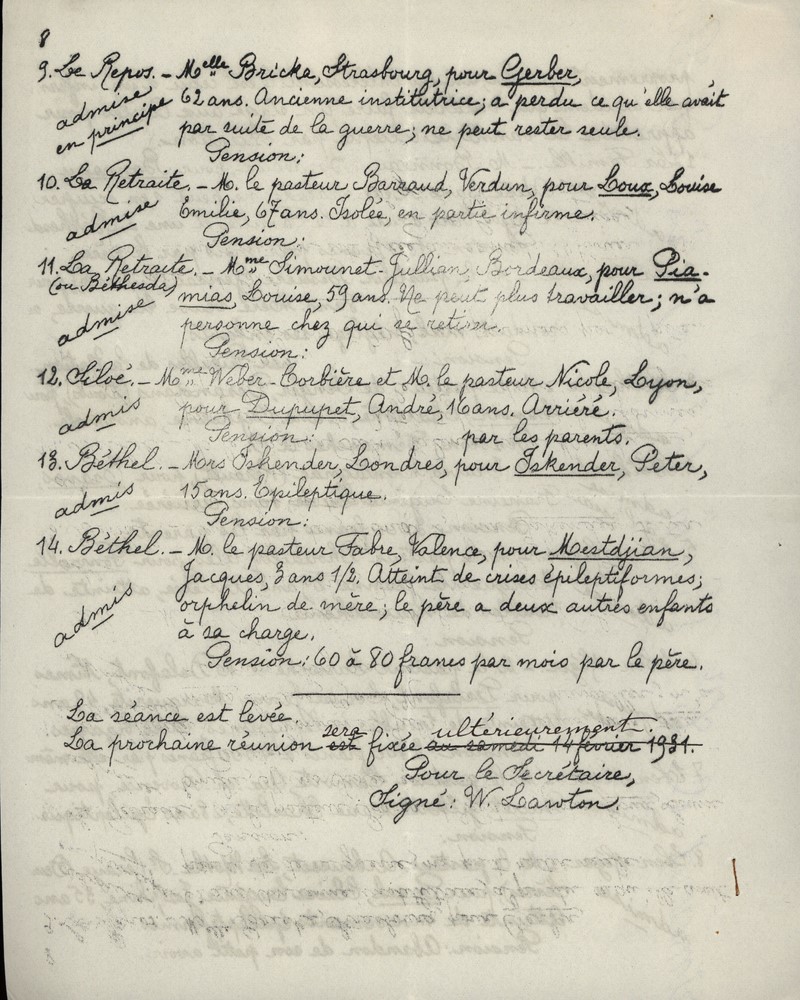 8
9. Le Repos. – Melle Bricka, Strasbourg, pour Gerber,
admise en principe
62 ans. Ancienne institutrice; a perdu ce qu'elle avait
par suite de la guerre; ne peut rester seule.
Pension:
10. La Retraite. – M. le pasteur Barraud, Verdun, pour Loux, Louise
admise
Emilie, 67 ans. Isolée, en partie infirme.
Pension:
11. La Retraite. – Mme Simounet-Jullian, Bordeaux, pour Pia-
(ou Béthesda)
mias, Louise, 59 ans. Ne peut plus travailler; n'a
admise
personne chez qui se retirer.
Pension:
12. Siloé. – Mme Weber-Corbière et M. le pasteur Nicole, Lyon,
admis
pour Dupupet, André, 16 ans. Arriéré.
Pension: par les parents.
13. Béthel. – Mrs Iskender, Londres, pour Iskender, Peter,
admis
15 ans. Epileptique.
Pension:
14. Béthel. – M. le pasteur Fabre, Valence, pour Mestdjian,
Jacques, 3 ans 1/2. Atteint de crises épileptiformes;
admis
orphelin de mère; le père a deux autres enfants
à sa charge.
Pension: 60 à 80 francs par mois par le père.
La séance est levée.
sera ultérieurement.
La prochaine réunion est fixée au samedi 14 février 1931.
Pour le Secrétaire,
Signé: W. Lawton.